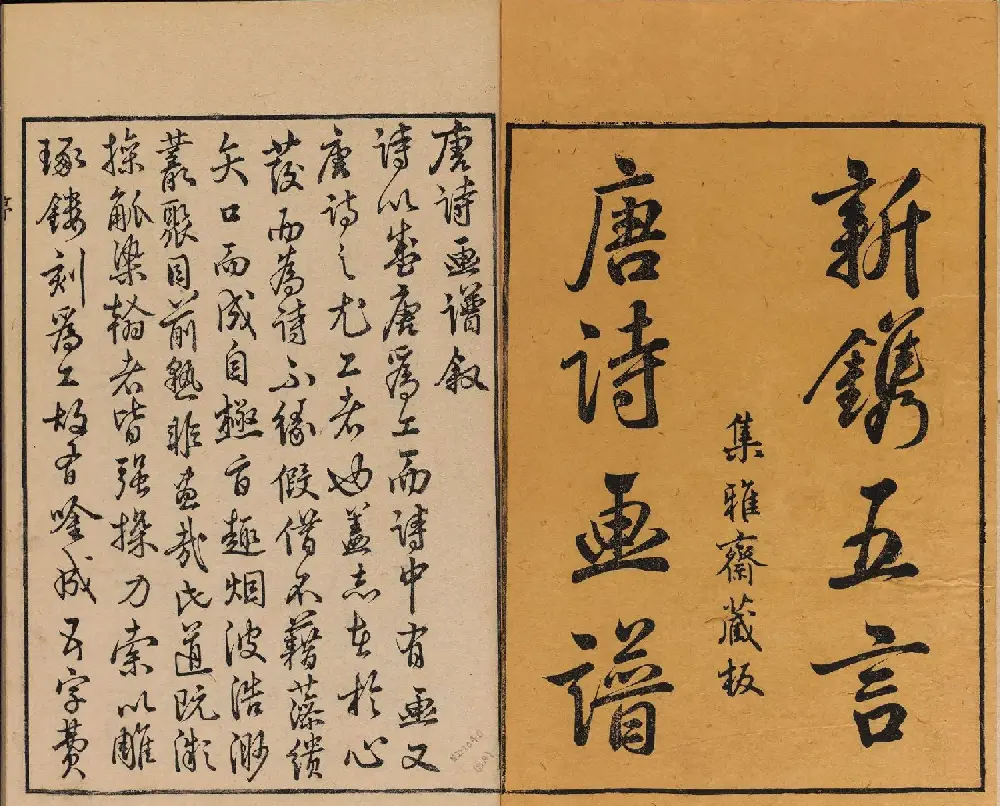 新鐫五言
集雅齋藏板
唐詩畫譜
唐詩畫譜敘
詩以盛唐爲工而詩中有畫又
唐詩之尤工者也蓋志在於心
發而為詩不緣假借不藉藻繢
矢口而成自極旨趣烟波浩渺
叢聚目前孰非畫哉此道既漓
操觚染翰者皆强操刀索以雕
琢鏤刻爲工故有唫成五字費